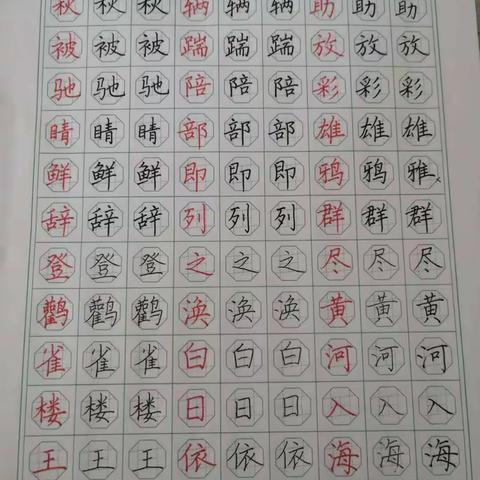 秋秋秋辆辆辆助助助
被被被踹踹踹放放放
驰驰驰陪陪陪彩彩彩
睛睛睛部部部雄雄雄
鲜鲜鲜即即即鸦鸦雅
辞辞辞列列列群群群
登登登之之之尽尽尽
鹳鹳鹳涣涣涣黄黄黄
雀雀雀白白白河河河
楼楼楼日日日入入入
王王王依依依海海海